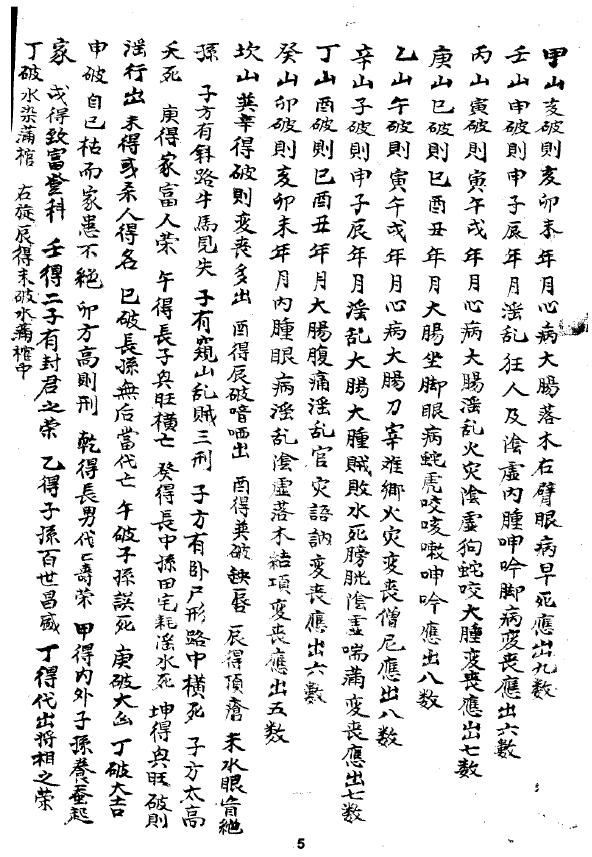 甲山亥破則亥卯未年月心病大腸落木右臂眼病早死應出九数
壬山申破則申子辰年月淫乱狂人及陰虚内腫呻吟脚病変喪應出六數
丙山寅破則寅午戌年月心病大腸淫乱火灾陰虚狗蛇咬大腫変喪應出七数
庚山巳破則巳酉丑年月大腸坐脚眼病蛇虎咬咳嗽呻吟應出八数
乙山午破則寅午戌年月心病大腸刀宰離鄉火灾変喪僧尼應出八数
辛山子破則申子辰年月淫乱大腸大腫賊敗水死膀胱陰虚喘滿変喪應出七数
丁山酉破則巳酉丑年月大腸腹痛淫乱官灾語訥変喪應出六數
癸山卯破則亥卯未年月内腫眼病淫乱陰虚落木結項変喪應出五数
坎山巽辛得破則変喪多出 酉得辰破喑哂出 酉得巽破缺唇 辰得頂瘡 未水眼盲絶
孫 子方有斜路牛馬見失 子有窺山乱賊三刑 子方有卧尸形路中横死 子方太高
夭死 庚得家富人榮 午得長子與旺横亡 癸得長中孫田宅耗淫水死 坤得與旺破則
淫行出 未得或柔人得名 巳破長孫無后當代亡 午破子孫誤死 庚破大凶 丁破大吉
申破自己枯而家患不絶 卯方高則刑 乾得長男代亡奇榮 甲得内外子孫養蚕起
家 戌得致富登科 壬得二子有封君之榮 乙得子孫百世昌盛 丁得代出將相之榮
丁破水染滿棺 右旋辰得未破水滿棺中
5